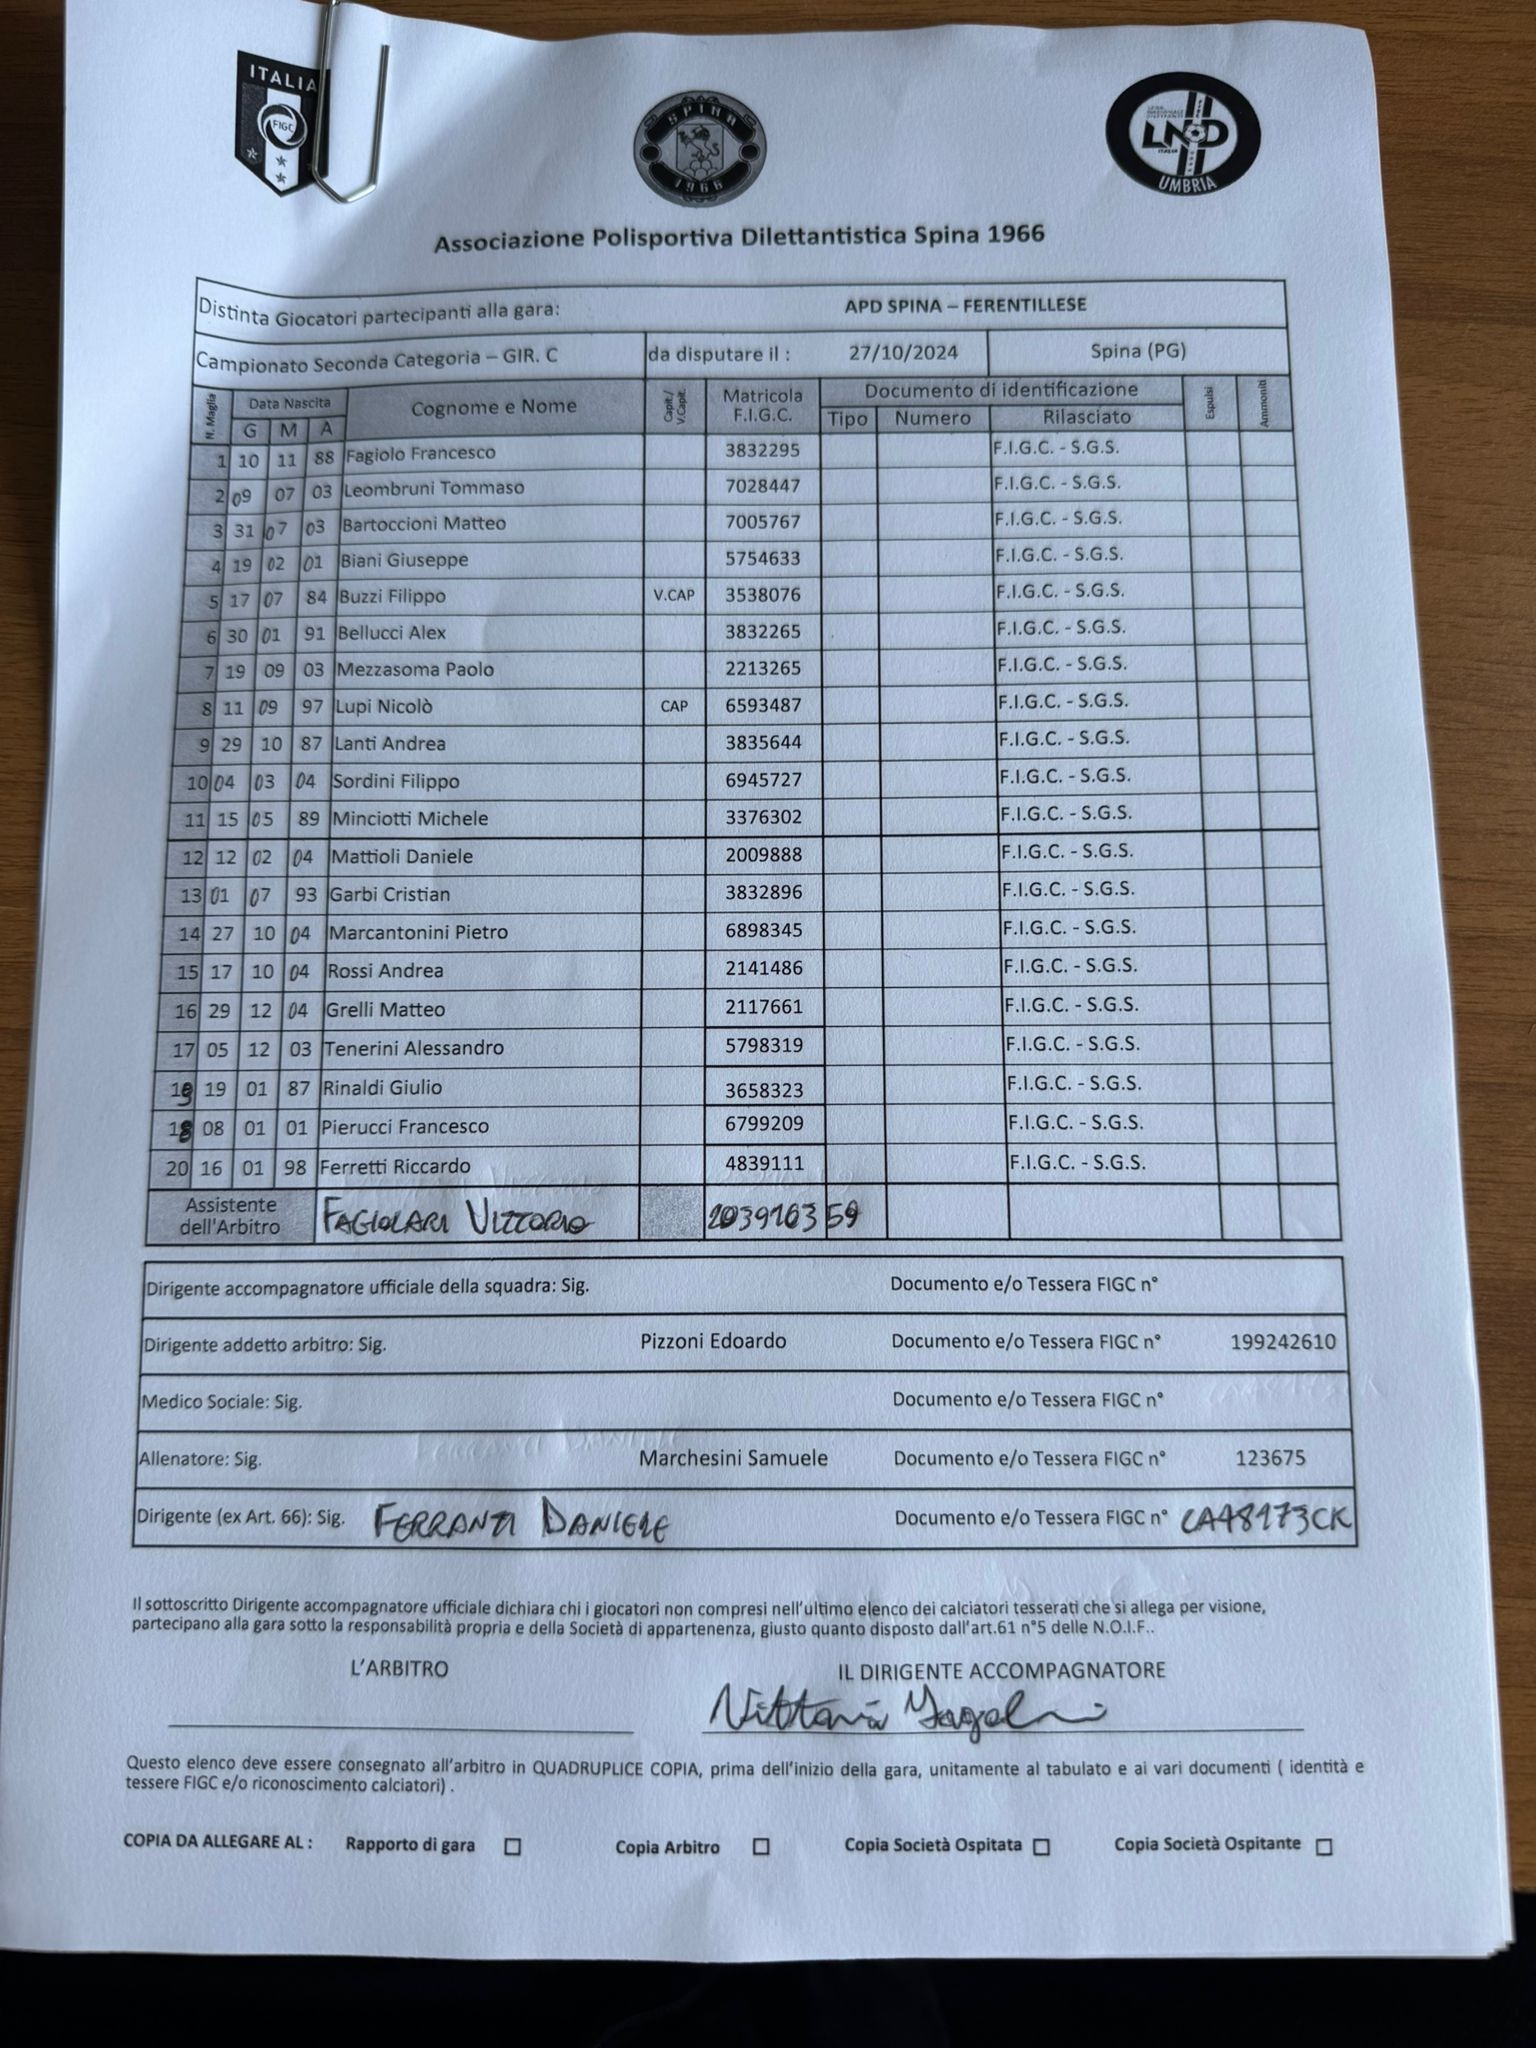 ITALIA
FIGC
SPINA
1966
LND
ITALIA
UMBRIA
Associazione Polisportiva Dilettantistica Spina 1966
Distinta Giocatori partecipanti alla gara: APD SPINA – FERENTILLESE
Campionato Seconda Categoria – GIR. C da disputare il : 27/10/2024 Spina (PG)
N. Maglia Data Nascita Cognome e Nome Capit./ V.Capit. Matricola F.I.G.C. Documento di identificazione Espulsi Ammoniti
G M A Tipo Numero Rilasciato
1 10 11 88 Fagiolo Francesco 3832295 F.I.G.C. - S.G.S.
2 09 07 03 Leombruni Tommaso 7028447 F.I.G.C. - S.G.S.
3 31 07 03 Bartoccioni Matteo 7005767 F.I.G.C. - S.G.S.
4 19 02 01 Biani Giuseppe 5754633 F.I.G.C. - S.G.S.
5 17 07 84 Buzzi Filippo V.CAP 3538076 F.I.G.C. - S.G.S.
6 30 01 91 Bellucci Alex 3832265 F.I.G.C. - S.G.S.
7 19 09 03 Mezzasoma Paolo 2213265 F.I.G.C. - S.G.S.
8 11 09 97 Lupi Nicolò CAP 6593487 F.I.G.C. - S.G.S.
9 29 10 87 Lanti Andrea 3835644 F.I.G.C. - S.G.S.
10 04 03 04 Sordini Filippo 6945727 F.I.G.C. - S.G.S.
11 15 05 89 Minciotti Michele 3376302 F.I.G.C. - S.G.S.
12 12 02 04 Mattioli Daniele 2009888 F.I.G.C. - S.G.S.
13 01 07 93 Garbi Cristian 3832896 F.I.G.C. - S.G.S.
14 27 10 04 Marcantonini Pietro 6898345 F.I.G.C. - S.G.S.
15 17 10 04 Rossi Andrea 2141486 F.I.G.C. - S.G.S.
16 29 12 04 Grelli Matteo 2117661 F.I.G.C. - S.G.S.
17 05 12 03 Tenerini Alessandro 5798319 F.I.G.C. - S.G.S.
19 19 01 87 Rinaldi Giulio 3658323 F.I.G.C. - S.G.S.
18 08 01 01 Pierucci Francesco 6799209 F.I.G.C. - S.G.S.
20 16 01 98 Ferretti Riccardo 4839111 F.I.G.C. - S.G.S.
Assistente dell'Arbitro FAGIOLARI VITTORIO 203910359
Dirigente accompagnatore ufficiale della squadra: Sig. Documento e/o Tessera FIGC n°
Dirigente addetto arbitro: Sig. Pizzoni Edoardo Documento e/o Tessera FIGC n° 199242610
Medico Sociale: Sig. Documento e/o Tessera FIGC n°
Allenatore: Sig. Marchesini Samuele Documento e/o Tessera FIGC n° 123675
Dirigente (ex Art. 66): Sig. FERRANTI DANIELE Documento e/o Tessera FIGC n° CA48173CK
Il sottoscritto Dirigente accompagnatore ufficiale dichiara chi i giocatori non compresi nell'ultimo elenco dei calciatori tesserati che si allega per visione,
partecipano alla gara sotto la responsabilità propria e della Società di appartenenza, giusto quanto disposto dall'art.61 n°5 delle N.O.I.F..
L'ARBITRO IL DIRIGENTE ACCOMPAGNATORE
Questo elenco deve essere consegnato all'arbitro in QUADRUPLICE COPIA, prima dell'inizio della gara, unitamente al tabulato e ai vari documenti ( identità e
tessere FIGC e/o riconoscimento calciatori) .
COPIA DA ALLEGARE AL : Rapporto di gara Copia Arbitro Copia Società Ospitata Copia Società Ospitante